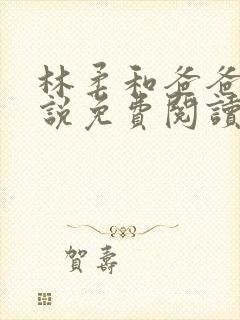 林柔和爸爸
說免費閱讀
賀壽